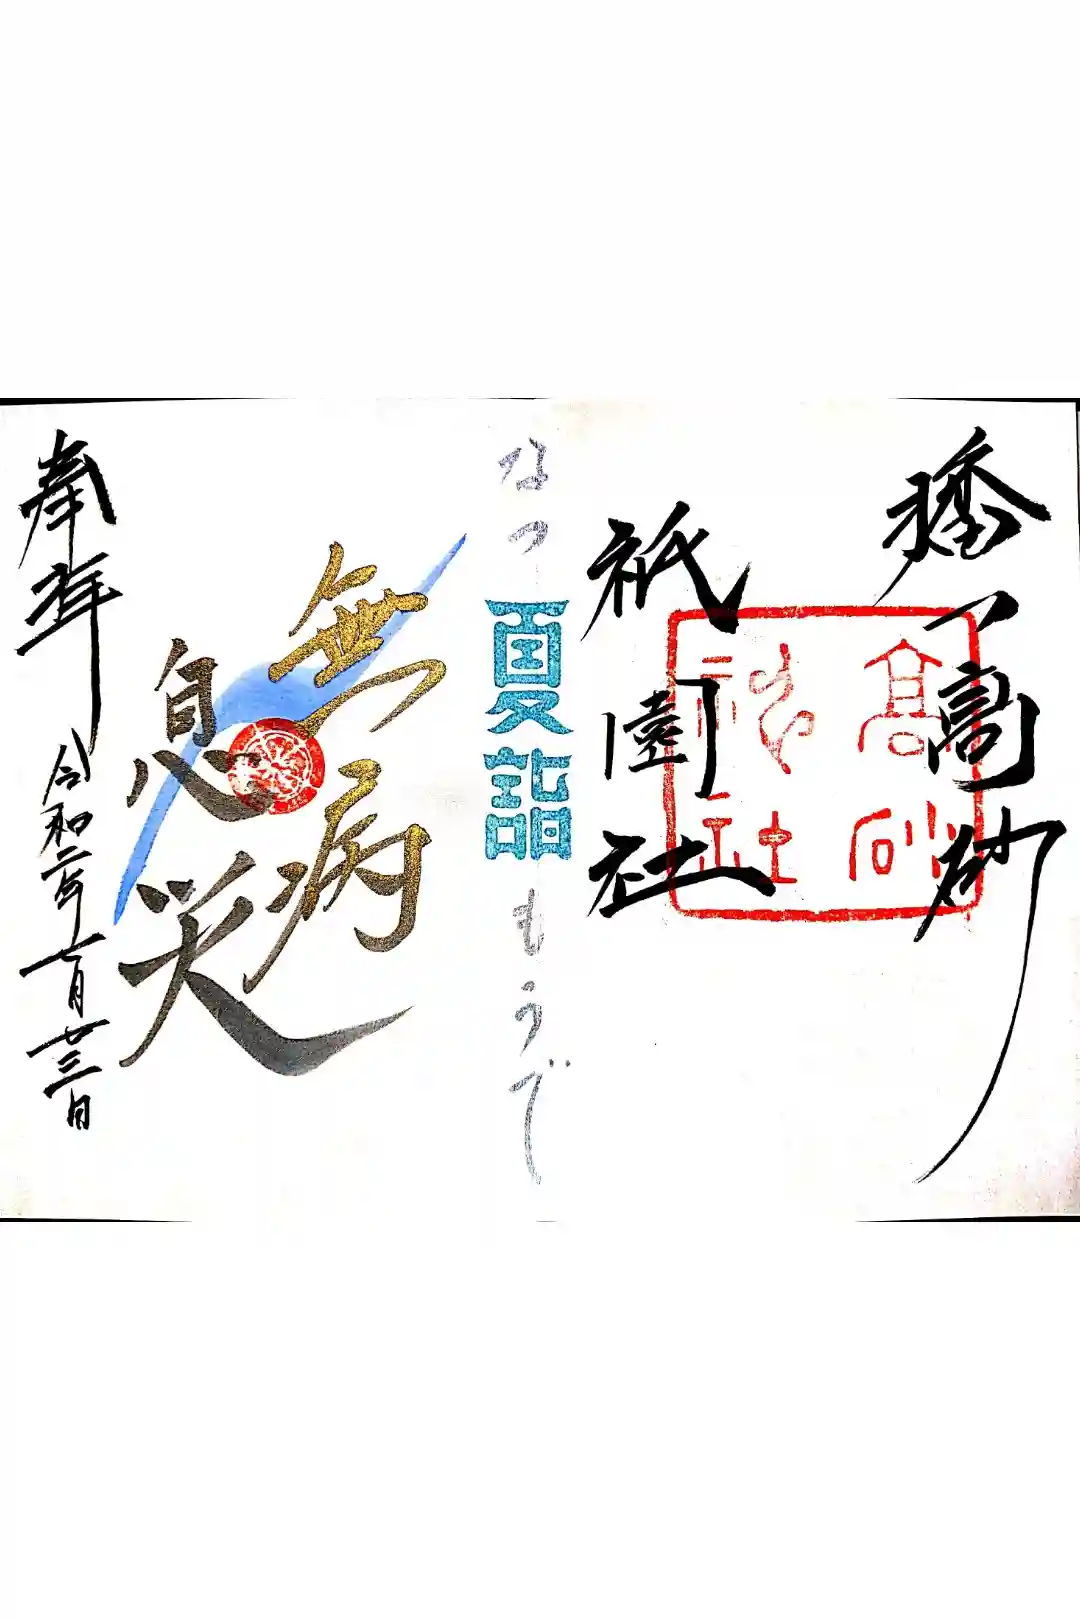 播州高砂
祇園社
高砂
神社
なつ
夏詣
もうで
無病
息災
奉拝
令和二年七月廿三日